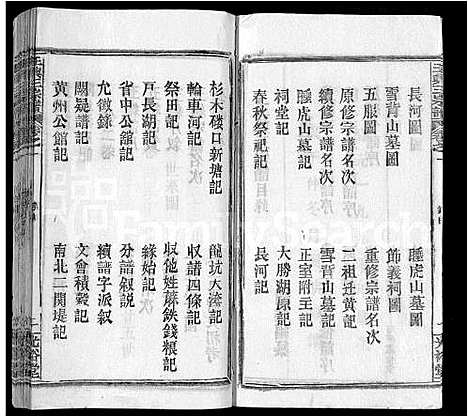 長河圖
雪背山墓圖
五服圖
原修宗譜名次
續修宗譜名次
睡虎山墓記
祠堂記
春秋祭祀記
睡虎山墓圖
飾義祠圖
重修宗譜名次
三祖迁黄記
雪背山墓記
正室附主記
大勝湖原記
長河記
杉木磽口新塘記
輪車河記
祭田記
戸長湖記
省中公館記
允徴録
關疑譜記
黄州公館記
龍坑大漆記
收譜四條記
收他姓藤鉄錢粮記
緣始記
分譜叙説
續字派叙
文會積穀記
南北二関堤記
光裕堂